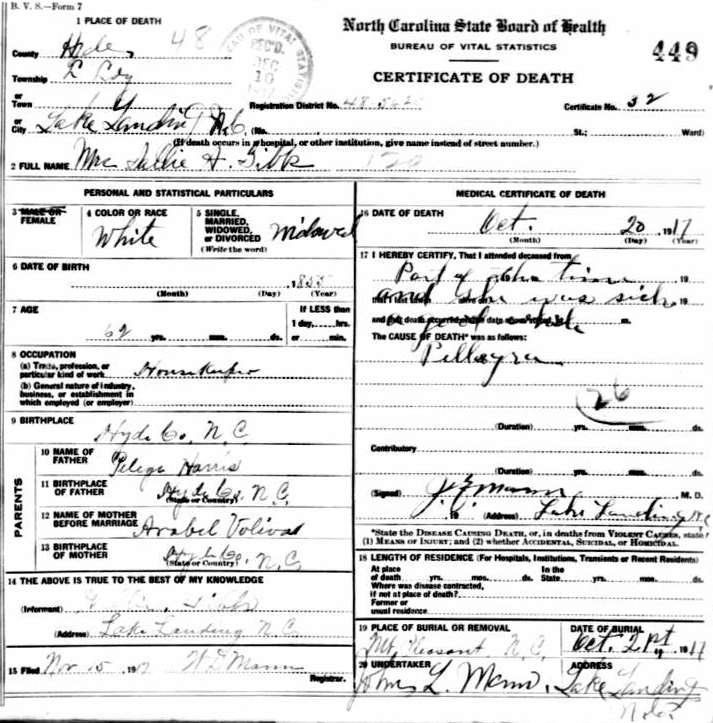 B. V. S.—Form 7
1 PLACE OF DEATH
County Hyde 48
Township
or
Town
or
City Lake Landing N.C. (No. St.; Ward)
BUREAU OF VITAL STATISTICS REC'D. DEC 10 1917
North Carolina State Board of Health
BUREAU OF VITAL STATISTICS
CERTIFICATE OF DEATH
449
Registration District No. Certificate No. 32
(If death occurs in a hospital, or other institution, give name instead of street number.)
2 FULL NAME Mrs Sallie A. Gibbs
PERSONAL AND STATISTICAL PARTICULARS
3 MALE OR FEMALE
4 COLOR OR RACE
White
5 SINGLE, MARRIED, WIDOWED, or DIVORCED
(Write the word)
Widowed
6 DATE OF BIRTH
1855
(Month) (Day) (Year)
7 AGE
62 yrs. mos. ds.
If LESS than
1 day, hrs.
or min.
8 OCCUPATION
(a) Trade, profession, or
particular kind of work Housekeeper
(b) General nature of industry,
business, or establishment in
which employed (or employer)
9 BIRTHPLACE
Hyde Co. N.C.
PARENTS
10 NAME OF
FATHER Pelege Harris
11 BIRTHPLACE
OF FATHER Hyde Co. N.C.
(State or Country)
12 NAME OF MOTHER
BEFORE MARRIAGE Arabel Voliva
13 BIRTHPLACE
OF MOTHER Hyde Co. N.C.
(State or Country)
14 THE ABOVE IS TRUE TO THE BEST OF MY KNOWLEDGE
(Informant) Gibbs
(Address) Lake Landing N.C.
15 Filed Nov 15 191 W D Mann
Registrar.
MEDICAL CERTIFICATE OF DEATH
16 DATE OF DEATH
Oct. 20 1917
(Month) (Day) (Year)
17 I HEREBY CERTIFY, That I attended deceased from
Part of the time 19
that I last saw alive on
and she was sick 19
and that death occurred on the date above stated m.
a good while
The CAUSE OF DEATH* was as follows:
Pellagra
26
(Duration) yrs. mos. ds.
Contributory
(Duration) yrs. mos. ds.
(Signed) Mann M. D.
19 (Address) Lake Landing N.C.
*State the DISEASE CAUSING DEATH, or, in deaths from VIOLENT CAUSES, state
(1) MEANS OF INJURY; and (2) whether ACCIDENTAL, SUICIDAL, or HOMICIDAL.
18 LENGTH OF RESIDENCE (For Hospitals, Institutions, Transients or Recent Residents)
At place
of death yrs. mos. ds.
In the
State yrs. mos. ds.
Where was disease contracted,
if not at place of death?
Former or
usual residence
19 PLACE OF BURIAL OR REMOVAL
Mt. Pleasant, N.C.
DATE OF BURIAL
Oct. 21st 1917
20 UNDERTAKER
John L. Mann.
ADDRESS
Lake Landing
N.C.